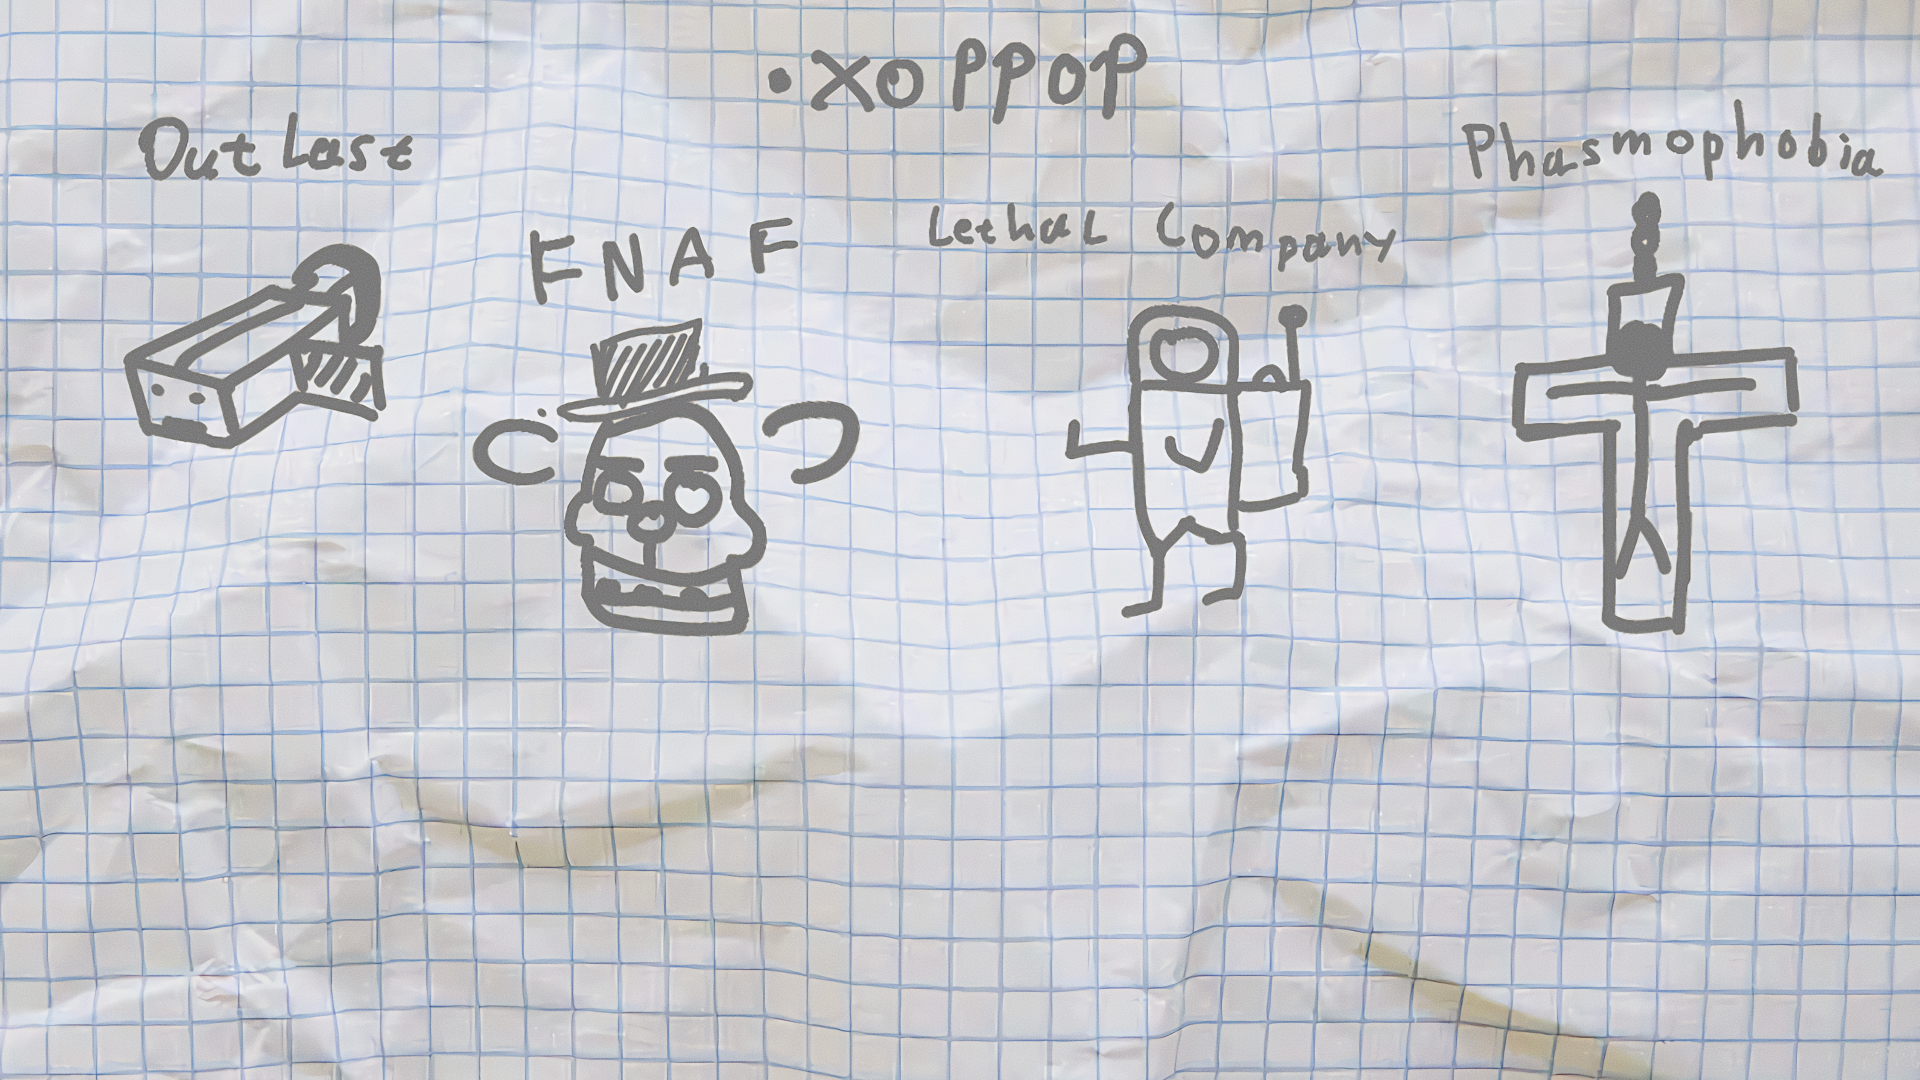 • хоррор
OutLast
FNAF
Lethal Company
Phasmophobia